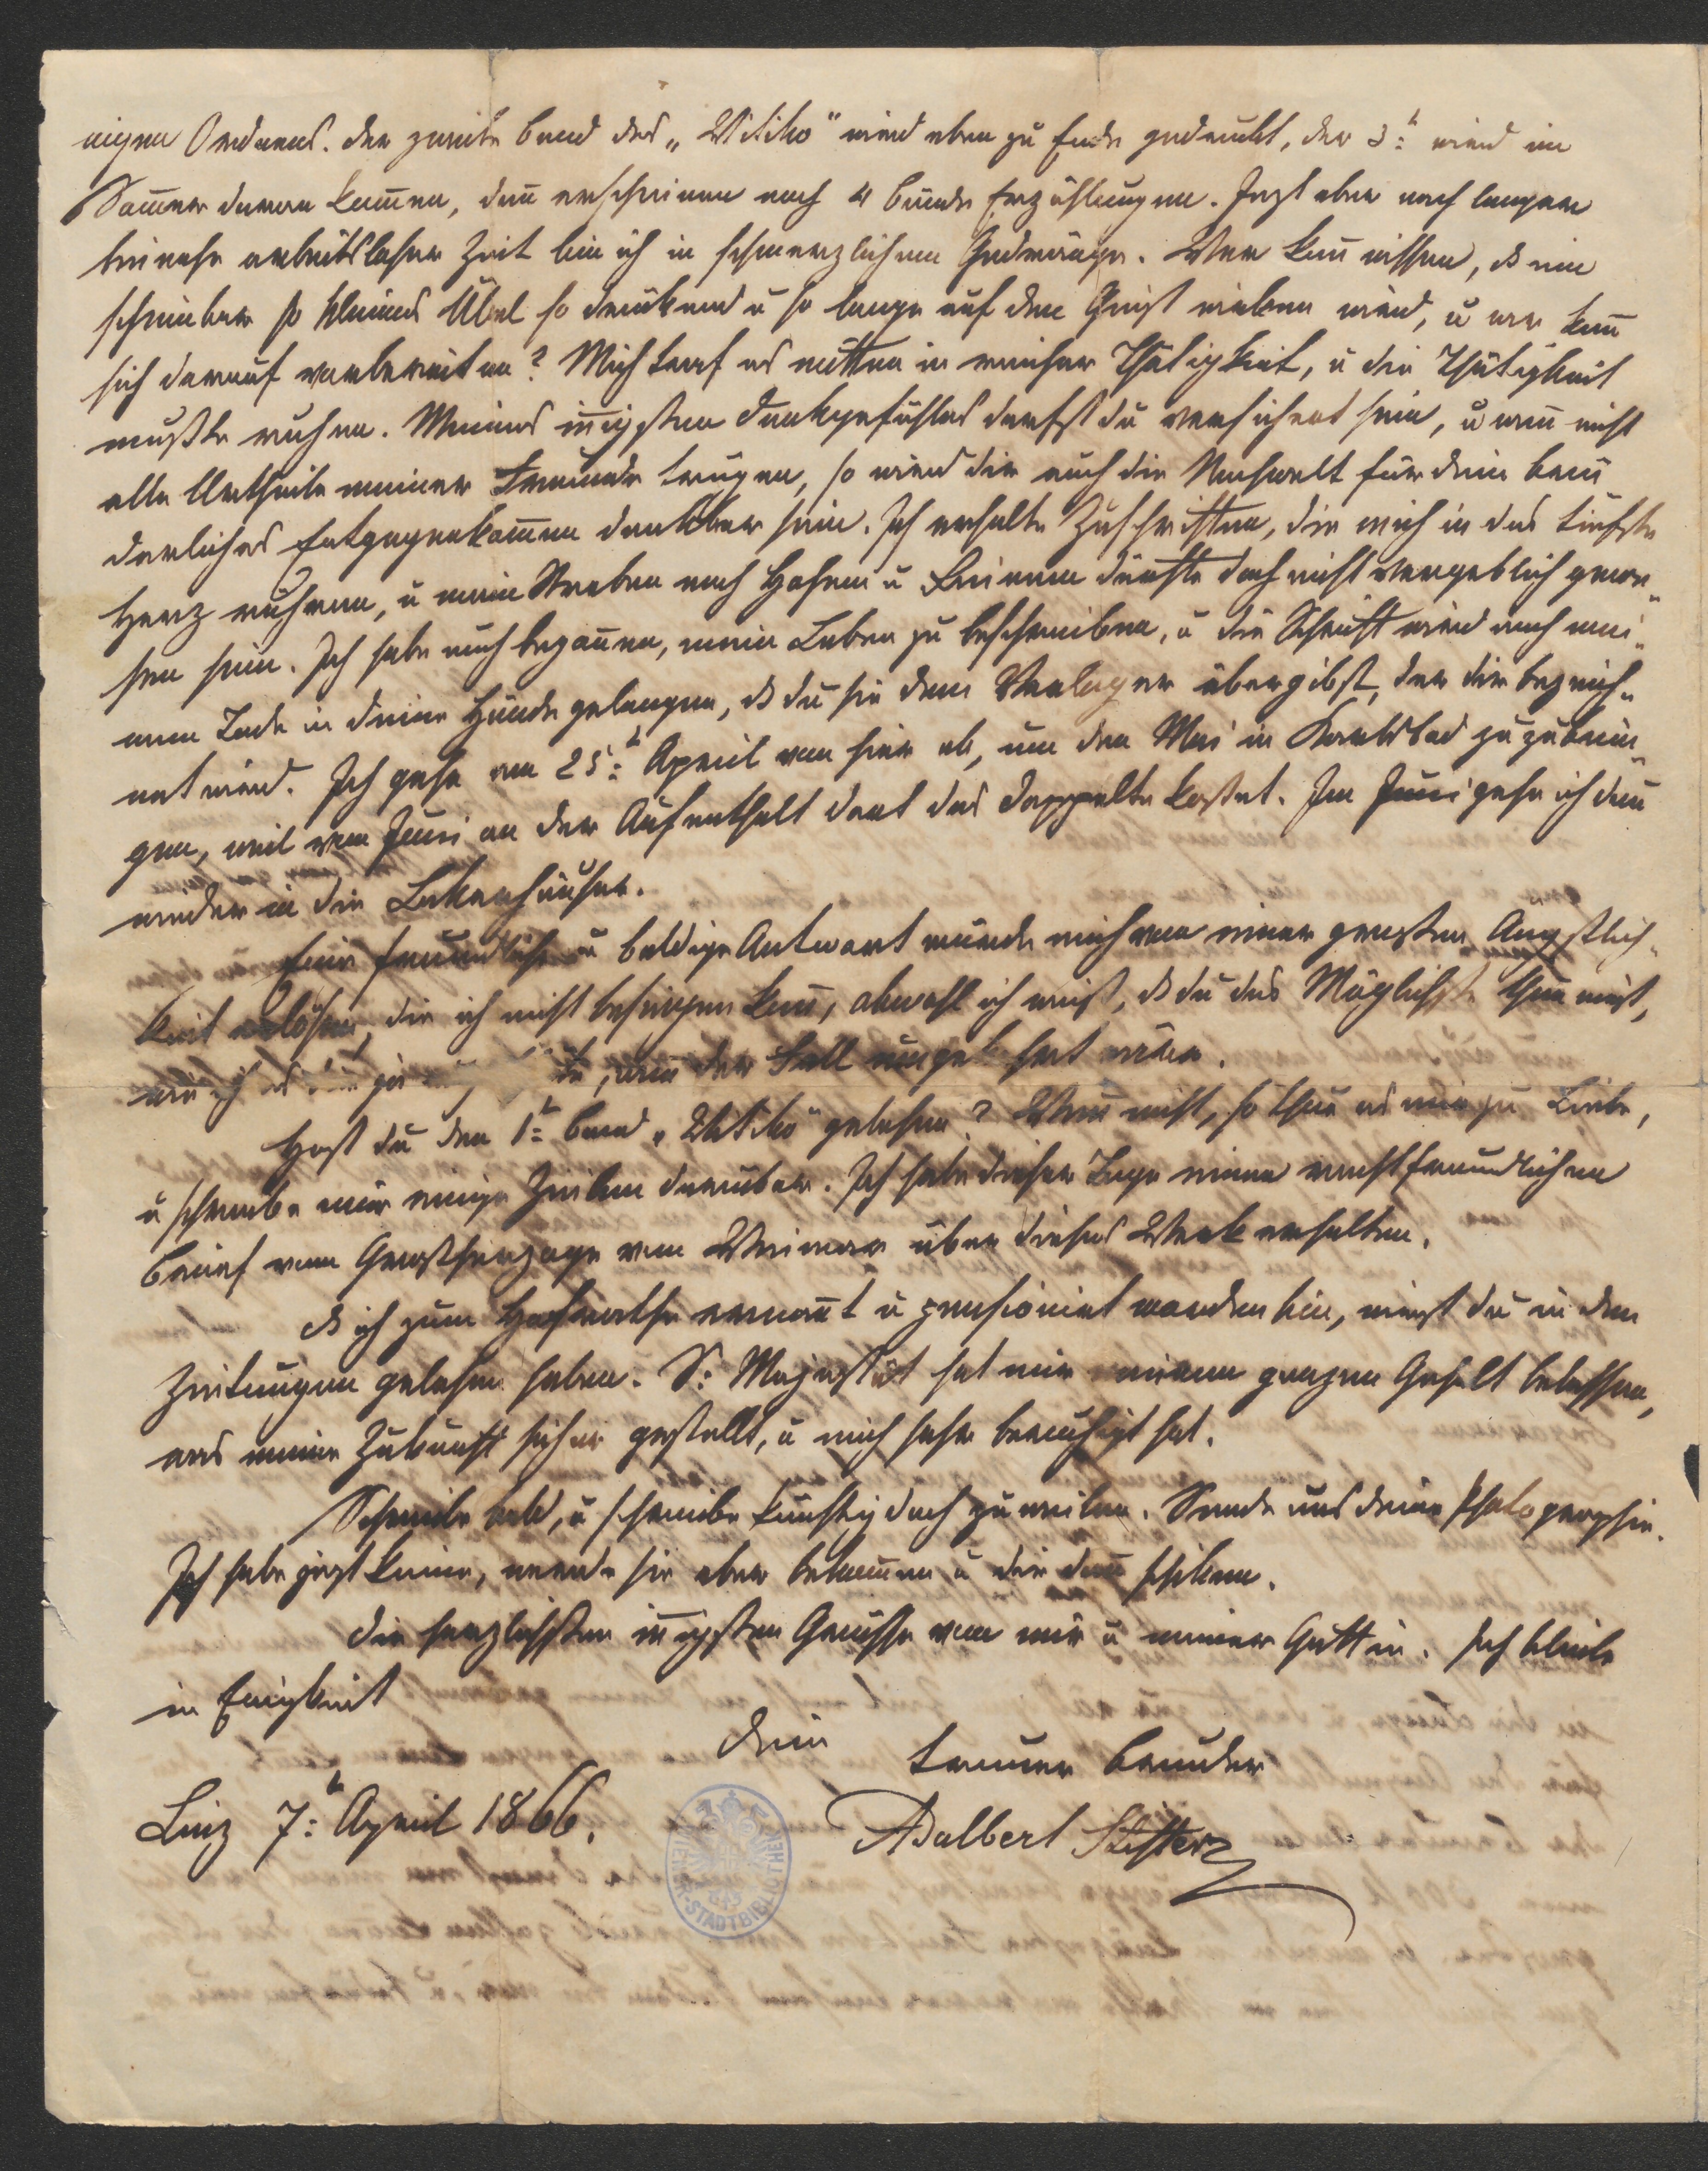 eignen Ordnens. Der zweite Band des „Witiko“ wird eben zu Ende gedrukt, der 3:t wird im
Som̄er daran kom̄en, dan̄ erscheinen noch 4 Bände Erzählungen. Jezt aber nach langer
beinahe arbeitsloser Zeit bin ich in schmerzlichem Gedränge. Wer kan̄ wissen, dß ein
scheinbar so kleines Übel so drükend u so lange auf den Geist wirken wird, u wer kan̄
sich darauf vorbereiten? Mich traf es mitten in reicher Thätigkeit, u die Thätigkeit
mußte ruhen. Meines in̄igsten Dankgefühles darfst du versichert sein, u wen̄ nicht
alle Urtheile meiner Freunde trügen, so wird dir auch die Nachwelt für dein brü
derliches Entgegenkom̄en dankbar sein. Ich erhalte Zuschriften, die mich in das tiefste
Herz rühren, u mein Streben nach Hohem u Reinem dürfte doch nicht vergeblich gewe„
sen sein. Ich habe auch begon̄en, mein Leben zu beschreiben, u die Schrift wird nach mei„
nem Tode in deine Hände gelangen, dß du sie dem Verleger übergibst, der dir bezeich„
net wird. Ich gehe am 25:t April von hier ab, um den Mai in Karlsbad zuzubrin„
gen, weil vom Juni an der Aufenthalt dort das doppelte kostet. Im Juni gehe ich dan̄
wieder in die Lakerhäuser.
Eine freundliche u baldige Antwort würde mich von einer großen Ängstlich„
keit erlösen, die ich nicht besiegen kan̄, obwohl ich weiß, dß du das Möglichste thun wirst,
wie ich es dir ja, wen̄ der Fall umgekehrt wäre.
Hast du den 1:t Band „Witiko“ gelesen? Wen̄ nicht, so thue es mir zu Liebe,
u schreibe mir einige Zeilen darüber. Ich habe dieser Tage einen recht freundlichen
Brief vom Großherzoge von Weimar über dieses Werk erhalten.
Dß ich zum Hofrathe ernan̄t u pensionirt worden bin, wirst du in den
Zeitungen gelesen haben. S: Majestät hat mir meinen ganzen Gehalt belassen,
was meine Zukunft sicher gestellt, u mich sehr beruhigt hat.
Schreibe bald, u schreibe künftig doch zuweilen. Sende uns deine Photographie.
Ich habe jezt keine, werde sie aber bekom̄en u dir dan̄ schiken.
Die herzlichsten in̄igsten Grüsse von mir u meiner Gattin. Ich bleibe
in Ewigkeit
dein
treuer Bruder
Linz 7:t April 1866.
Adalbert Stifter
WIENER-STADTBIBLIOTHEK